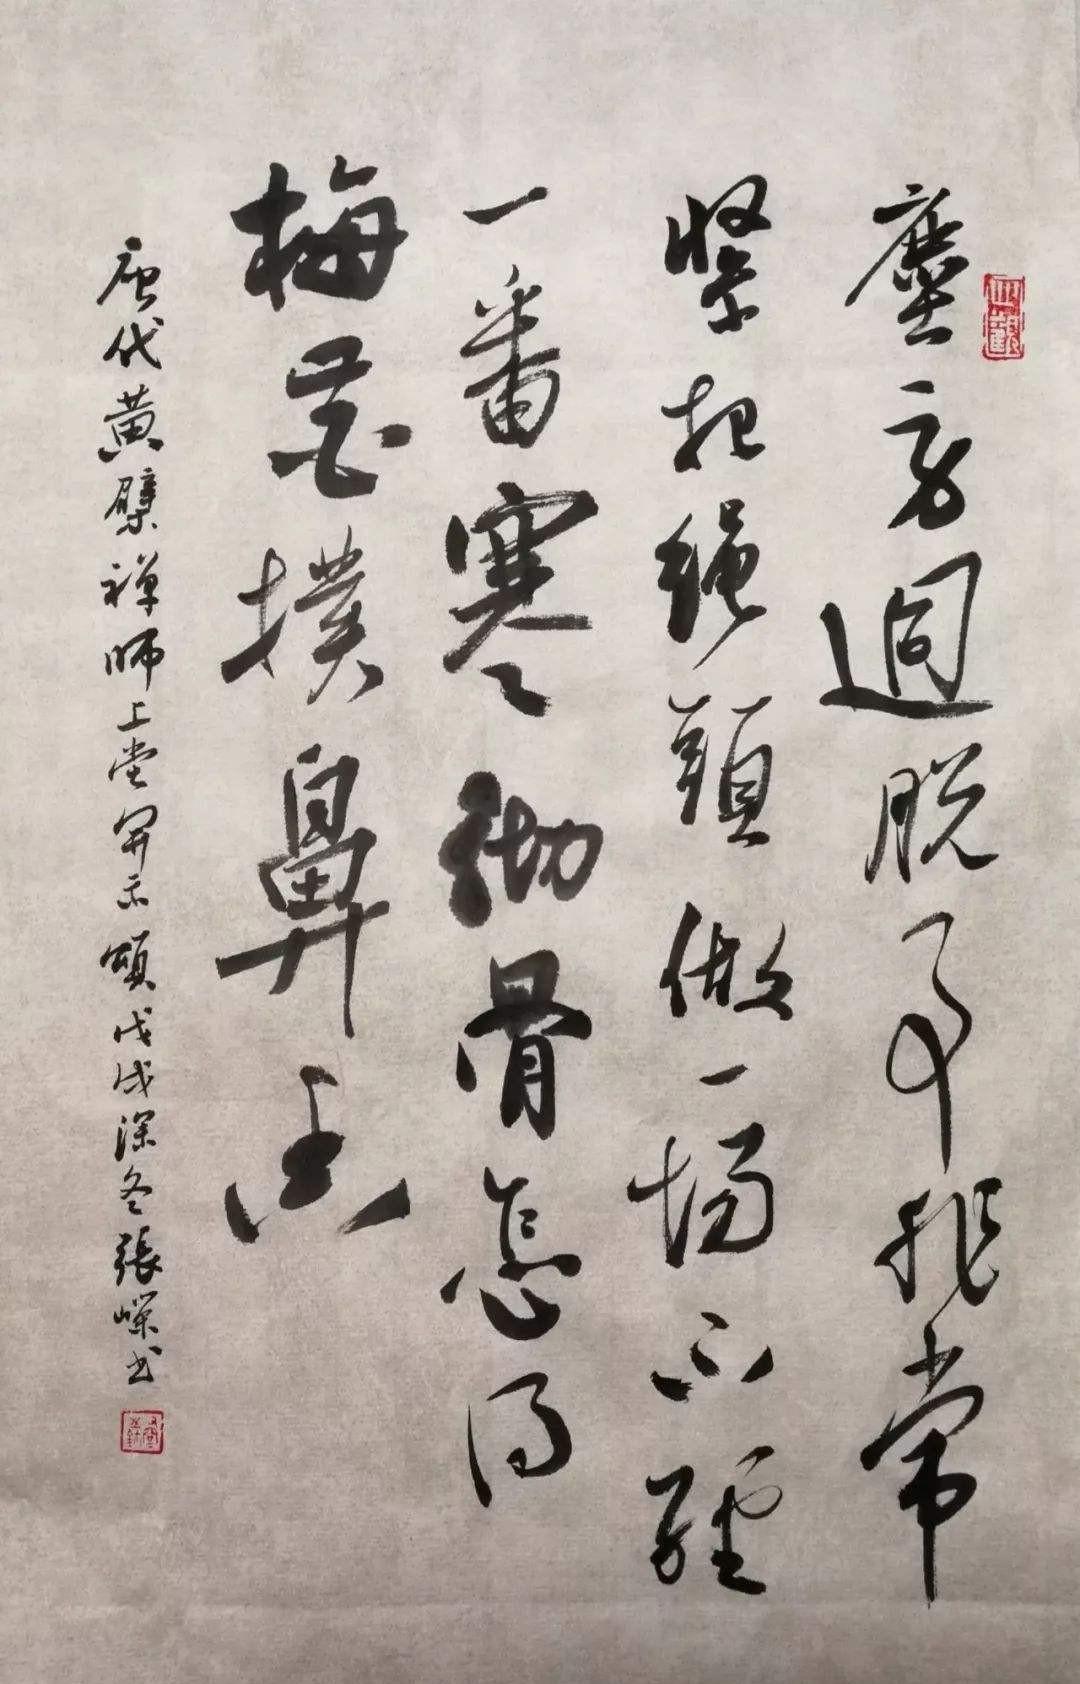 塵劳迥脱事非常
緊把繩頭做一場不經
一番寒徹骨怎得
梅花撲鼻香
唐代黄檗禅師上堂開示頌戊戌深冬張嶸书